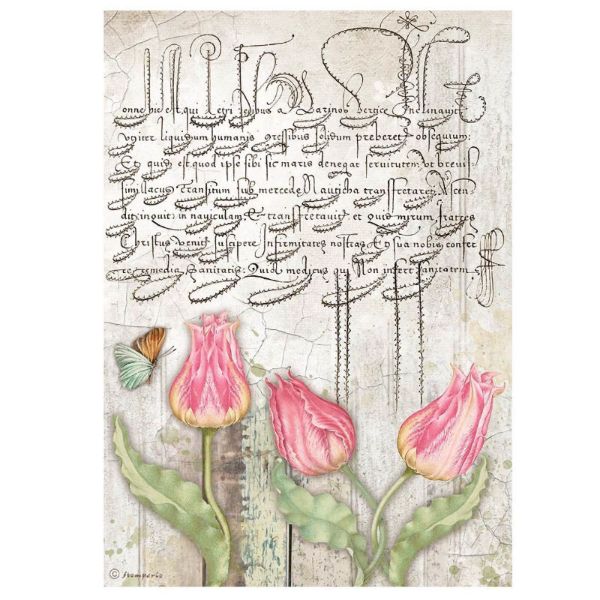 onne hic est, qui
Vnixit liquidum humanis gressibus solidum preberet obsequium:
Et quid est quod ipse sibi sic maris denegat servitutem, ut brevis
simi lacus transitum sub mercede Nauticha transfretaret. Ascen
dit, inquit, in naviculam, & transfretavit, et Quid mirum fratres
Christus venit suscipere Infirmitates nostras, Et sua nobis confer
re remedia Sanitatis: Quia medicus qui Non infert sanitatem
© Stamperia